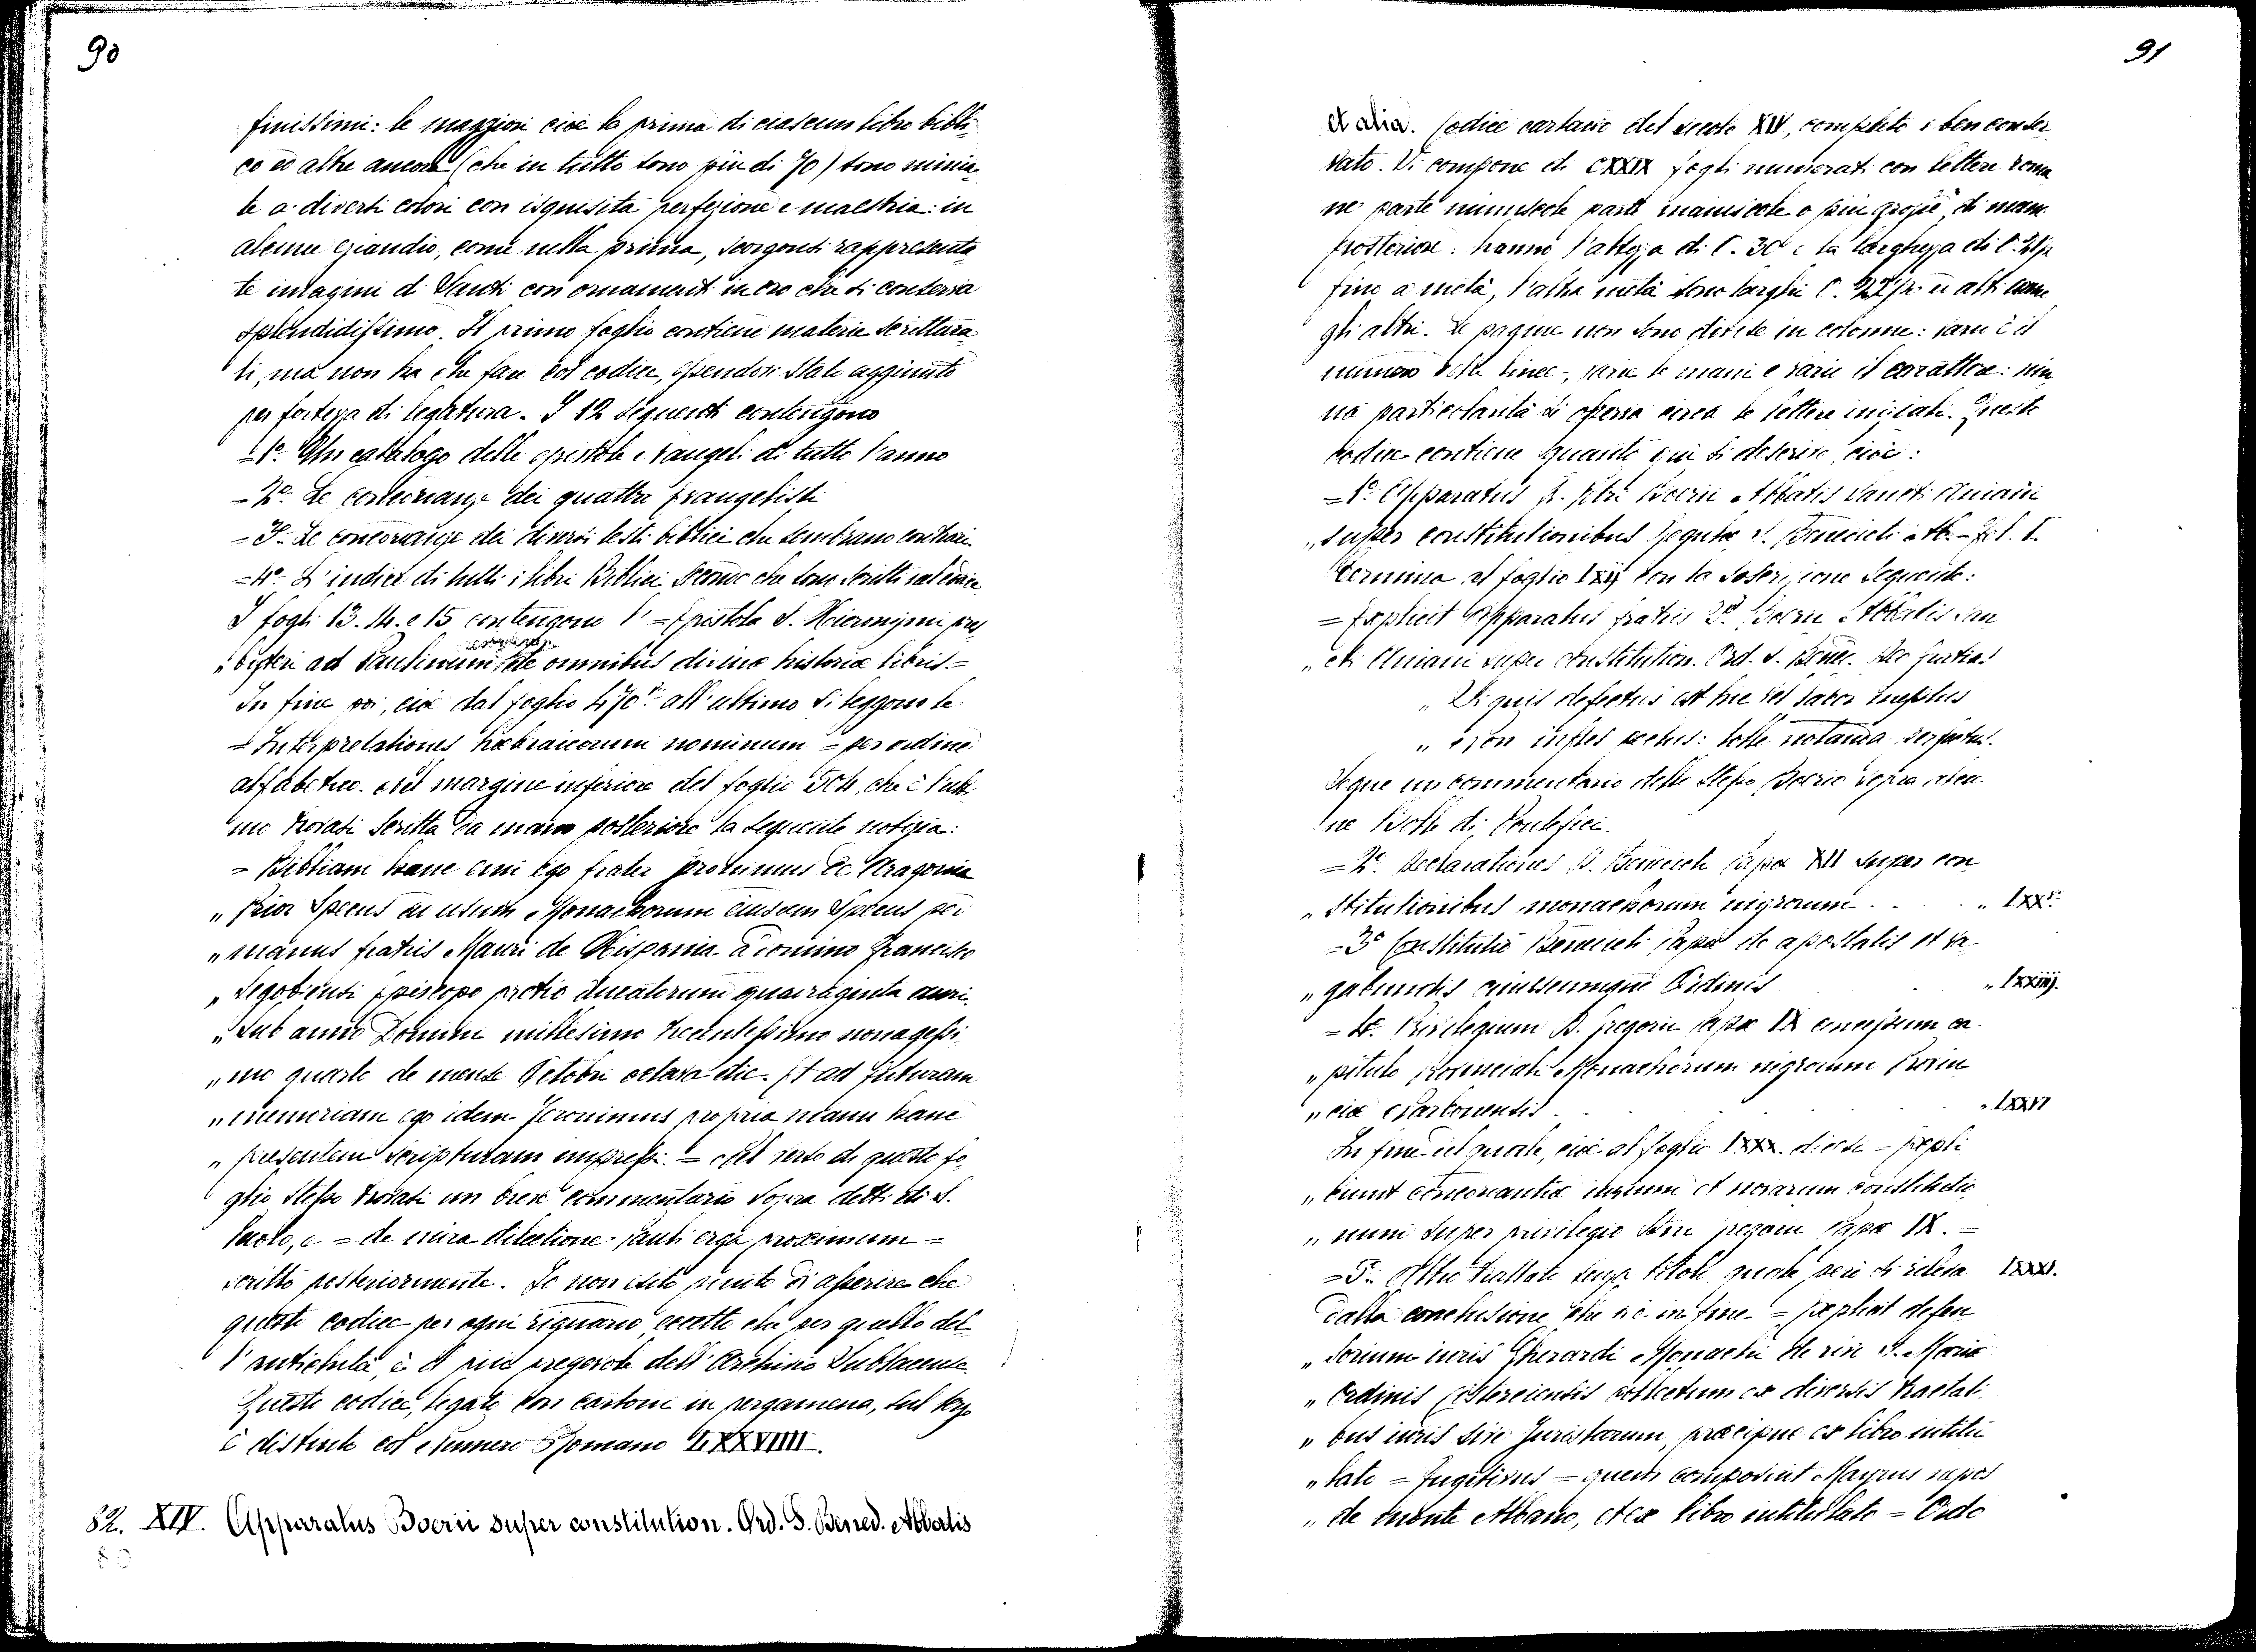 90
finissimi: le maggiori cioè la prima di ciascun libro bibli
co ed altre ancora (che in tutto sono più di 70) sono minia
te a diversi colori con isquisita perfezione e maestria: in
alcune eziandio, come nella prima, scorgonsi rappresenta
te imagini di Santi con ornamenti in oro che si conserva
splendidissimo. Il primo foglio contiene materie scrittura
li, ma non ha che fare col codice, essendovi stato aggiunto
per fortezza di legatura. I 12 seguenti contengono
=1.° Un catalogo delle epistole e vangeli di tutto l'anno
=2.° Le concordanze dei quattro Evangelisti
=3.° Le concordanze dei diversi testi biblici che sembrano contrari.
=4.° L'indice di tutti i libri Biblici secondo che sono scritti nel codice
I fogli 13. 14. e 15 contengono l' = Epistola S. Hieronymi pres
„ byteri ad Paulinum de omnibus divinæ historiæ libris. =
In fine poi, cioè dal foglio 470.° all'ultimo si leggono le
= Interpretationes hebraicorum nominum = per ordine
alfabetico. Nel margine inferiore del foglio 504, che è l'ulti
mo trovasi scritta da mano posteriore la seguente notizia:
= Bibliam hanc emi ego frater Jeronimus de Aragonia
„ Prior Specus ad usum Monachorum eiusdem Specus per
„ manus fratris Mauri de Hispania a domino Francisco
„ Segobiensi Episcopo pretio ducatorum quadraginta auri
„ sub anno Domini millesimo trecentessimo nonagessi
„ mo quarto de mense Octobri octava die. Et ad futuram
„ memoriam ego idem Jeronimus propria manu hanc
„ presentem scripturam impressi. = Nel verso di questo fo
glio stesso trovasi un breve commentario sopra detti di S.
Paolo, e = de mira dilectione Pauli erga proximum =
scritto posteriormente. Io non esito punto di asserire che
questo codice per ogni riguardo, eccetto che per quello del
l'antichità, è il più pregevole dell'Archivio Sublacense.
Questo codice, legato con cartone in pergamena, sul
è distinto col Numero Romano LXXVIIII.
82. XIV. Apparatus Boerii super constitution. Ord. S. Bened. Abbatis
80
91
et alia. Codice cartaceo del secolo XIV, completo e ben conser
vato. Si compone di CXXIX fogli numerati con lettere roma
ne parte minuscole parte maiuscole o più grosse, di mano
posteriore: hanno l'altezza di C. 30 e la larghezza di C.
fino a metà, l'altra metà sono larghi C. ed alti come
gli altri. Le pagine non sono divise in colonne: vario è il
numero delle linee, varie le mani e vario il carattere: niu
na particolarità si osserva circa le lettere iniciali. Questo
codice contiene quanto qui si descrive, cioè:
=1.° Apparatus fr. Petri Boerii Abbatis Sancti Aniani
„ super constitutionibus Regulæ S. Benedicti Ab. - Fol. I.
Termina al foglio lxij con la soscrizione seguente:
= Explicit Apparatus fratris P. Boerii Abbatis San
„ cti Aniani super constitution. Ord. S. Bened. Deo gratias
„ Si quis defectus est hic vel labor ineptus
„ Non infles pectus: tolle notanda perfectus.
Segue un commentario dello stesso Boerio sopra alcu
ne Bolle di Pontefici.
=2.° Declarationes D. Benedicti Papæ XII super con
„ stitutionibus monachorum nigrorum . . . „ lxx.°
=3.° Constitutio Benedicti Papæ de apostatis et va
„ gabundis cuiuscumque Ordinis . „ lxxiiij.
=4.° Privilegium D. Gregorii Papæ IX concessum ca
„ pitulo provinciali Monachorum nigrorum Provin
„ ciæ Narbonensis . . . „ lxxvi
In fine del quale, cioè al foglio lxxx. dicesi = Expli
„ ciunt concordantiæ iurium et novarum constitutio
„ num super privilegio Dni Gregorii Papæ IX. =
=5.° Altro trattato senza titolo, quale però si rileva lxxxi.
dalla conclusione che v'è in fine = Explicit defen
„ sorium iuris Gherardi Monachi de S. Maria
„ Ordinis Cisterciensis collectum ex diversis tractati
„ bus iuris sive Juristarum, præcipue ex libro intitu
„ lato = Fugitivus = quem composuit
„ de monte Albano, et ex libro intitulato = Ordo